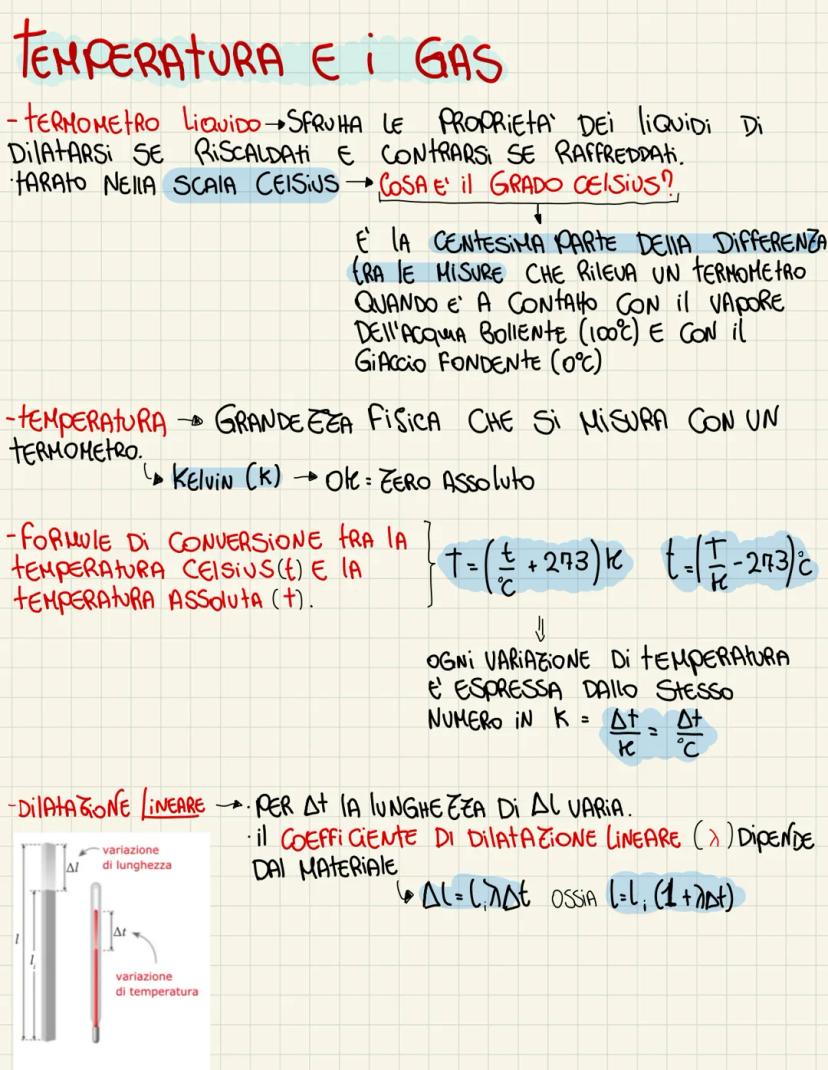 TEMPERATURA E i GAS
-TERMOMETRO LIQUIDO→SFRUTTA LE PROPRIETA' DEI LIQUIDI DI
DILATARSI SE RISCALDATI E CONTRARSI SE RAFFREDDATI.
·TARATO NELLA SCALA CELSIUS → COSA E' IL GRADO CELSIUS?
E' LA CENTESIMA PARTE DELLA DIFFERENZA
TRA LE MISURE CHE RILEVA UN TERMOMETRO
QUANDO E' A CONTATTO CON IL VAPORE
DELL'ACQUA BOLLENTE (100°C) E CON IL
GIACCIO FONDENTE (0°C)
-TEMPERATURA → GRANDEZZA FISICA CHE SI MISURA CON UN
TERMOMETRO.
↳ KELVIN (K) → 0K = ZERO ASSOLUTO
-FORMULE DI CONVERSIONE TRA LA
TEMPERATURA CELSIUS(t) E LA
TEMPERATURA ASSOLUTA (T).
T=(t/°C + 273)K t=(T/K - 273)°C
⇓
OGNI VARIAZIONE DI TEMPERATURA
E' ESPRESSA DALLO STESSO
NUMERO IN K = Δt/K = Δt/°C
-DILATAZIONE LINEARE →·PER Δt LA LUNGHEZZA DI Δl VARIA.
·IL COEFFICIENTE DI DILATAZIONE LINEARE (λ) DIPENDE
DAL MATERIALE
↳ Δl=lᵢλΔt OSSIA l=lᵢ(1+λΔt)
variazione
di lunghezza
Δl
Δt
l
lᵢ
variazione
di temperatura